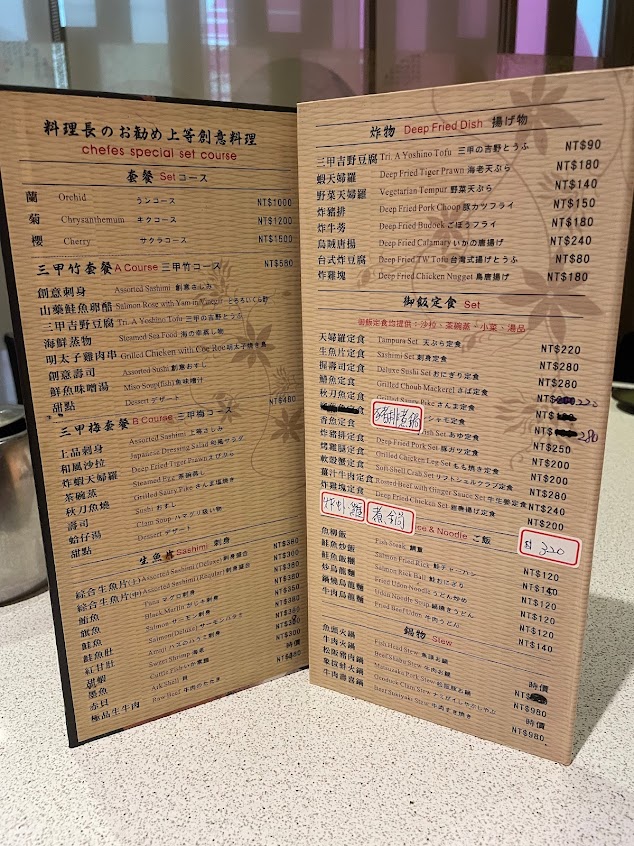 料理長のお勧め上等創意料理
chefes special set course
套餐 Set コース
蘭 Orchid ランコース NT$1000
菊 Chrysanthemum キクコース NT$1200
櫻 Cherry サクラコース NT$1500
三甲竹套餐 A Course 三甲竹コース NT$580
創意刺身 Assorted Sashimi 創意さしみ
山藥鮭魚卵醋 Salmon Rose with Yam in Vinegar とろろいくら酢
三甲吉野豆腐 Tri. A Yoshino Tofu 三甲の吉野とうふ
海鮮蒸物 Steamed Sea Food 海の幸蒸し物
明太子雞肉串 Grilled Chicken with Coe Roe 明太子焼き鳥
創意壽司 Assorted Sushi 創意おすし
鮮魚味噌湯 Miso Soup(fish) 魚味噌汁
甜點 Dessert デザート
三甲梅套餐 B Course 三甲梅コース NT$480
上品刺身 Assorted Sashimi 上等さしみ
和風沙拉 Japanese Dressing Salad 和風サラダ
炸蝦天婦羅 Deep Fried Tiger Prawn えびふら
茶碗蒸 Steamed Egg 茶碗蒸し
秋刀魚燒 Grilled Saury Pike さんま塩焼き
壽司 Sushi おすし
蛤仔湯 Clam Soup ハマグリ吸い物
甜點 Dessert デザート
生魚片 Sashimi 刺身
綜合生魚片(大) Assorted Sashimi (Deluxe) 刺身盛合 NT$380
綜合生魚片(中) Assorted Sashimi (Regular) 刺身盛合 NT$300
鮪魚 Tuna マグロ刺身 NT$380
旗魚 Black Marlin かじキ刺身
鮭魚 Salmon サーモン刺身
鮭魚肚 Salmon(Deluxe) サーモンハラミ
紅甘肚 Amuji ハスのハラミ刺身
甜蝦 Sweet Shrimp 海老
墨魚 Cuttle Fish いか素麺 NT$300
赤貝 Ark Shell 貝 時價
極品生牛肉 Raw Beef 牛肉のたたき
炸物 Deep Fried Dish 揚げ物
三甲吉野豆腐 Tri. A Yoshino Tofu 三甲の吉野とうふ NT$90
蝦天婦羅 Deep Fried Tiger Prawn 海老天ぷら NT$180
野菜天婦羅 Vegetarian Tempur 野菜天ぷら NT$140
炸豬排 Deep Fried Pork Choop 豚カツフライ NT$150
炸牛蒡 Deep Fried Budock ごぼうフライ NT$180
烏賊唐揚 Deep Fried Calamary いかの唐揚げ NT$240
台式炸豆腐 Deep Fried TW Tofu 台湾式揚げとうふ NT$80
炸雞塊 Deep Fried Chicken Nugget 鳥唐揚げ NT$180
御飯定食 Set
御飯定食均提供：沙拉、茶碗蒸、小菜、湯品
天婦羅定食 Tampura Set 天ぷら定食 NT$220
生魚片定食 Sashimi Set 刺身定食 NT$280
握壽司定食 Deluxe Sushi Set おにぎり定食 NT$280
鯖魚定食 Grilled Choub Mackerel さば定食 NT$200
秋刀魚定食 Grilled Saury Pike さんま定食 220
定食 豬排煮鍋 シャモ定食
香魚定食 Fish Set あゆ定食 280
炸豬排定食 Deep Fried Pork Set 豚カツ定食 NT$250
烤雞腿定食 Grilled Chicken Leg Set もも焼き定食 NT$200
軟殼蟹定食 Soft Shell Crab Set ソフトシェルクラブ定食 NT$200
薑汁牛肉定食 Roasted Beef with Ginger Sauce Set 牛生姜定食 NT$280
炸雞塊定食 Deep Fried Chicken Set 鶏唐揚げ定食 NT$240
NT$200
煮鍋 & Noodle ご飯 $320
魚柳飯 Fish Steak 鯛重
鮭魚炒飯 Salmon Fried Rice 鮭チャーハン NT$120
鮭魚飯糰 Salmon Rick Ball 鮭おにぎり NT$140
炒烏龍麵 Fried Udon Noodle うどん炒め NT$120
鍋燒烏龍麵 Udon Noodle Soup 鍋焼きうどん NT$120
牛肉烏龍麵 Fried Beef Udon 牛肉うどん NT$120
NT$140
鍋物 Stew
魚頭火鍋 Fish Head Stew 魚頭お鍋 時價
牛肉火鍋 Beef Shabu Stew 牛肉お鍋
松阪豬肉鍋 Matsusaka Pork Stew 松阪豚お鍋 NT$980
象拔蚌火鍋 Geoduck Clam Stew 時價
牛肉壽喜鍋 Beef Sukiyaki Stew 牛肉すき焼き NT$980